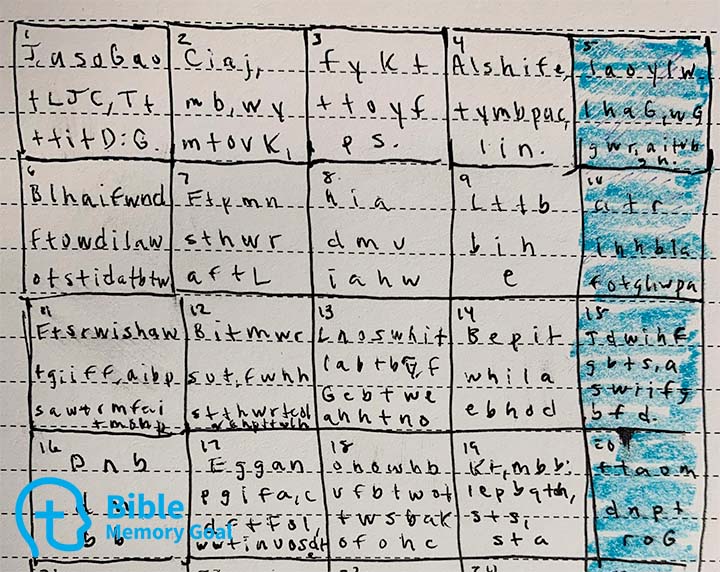 1
J, asoGao
tLJC, Tt
ttitD: G.
2
Ciaj,
mb, wy
mtovK,
3
fyKt
ttoyf
ps.
4
Alshife,
tymbpac,
lin.
5
Iaoylw,
lhaG, wg
gwr, aitwb
gh.
6
Blhaifwnd
ftowdilaw
otstidatbtw
7
Ftpmn
sthwr
aftL
8
hia
dmu
iahw
9
Lttb
bih
e
10
atr
ihhbla
fotghwpa
11
Ftsrwishaw
tgiiff, aibp
sawtrmfai
12
Bitmwr
sut, fwhh
stthwrtcol
13
Lnoswhit
Iabtb G, f
Gcbtwe
ahhtno
14
Bepit
whila
ebhod
15
Tdwihf
gbts, a
swiifg
bfd.
16
Dnb
bb
17
Eggan
pgifa, c
dftFol,
wwtinvosdt
18
ohowhb
ufbtwot
twsbak
ofohc
19
Kt, mbb:
lepbqth,
sts,
sta
20
ttaom
dnpt
roG
Bible
Memory Goal